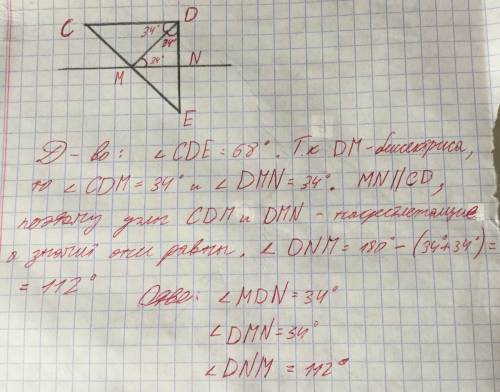 C D
34°
34°
34° N
M
E
Д-во: ∠CDE = 68°. Т.к DM-биссектриса,
то ∠CDM = 34° и ∠DMN = 34°. MN||CD,
поэтому углы CDM и DMN - накрест лежащие
а значит они равны. ∠DNM = 180° - (34°+34°) =
= 112°
Ответ: ∠MDN = 34°
∠DMN = 34°
∠DNM = 112°